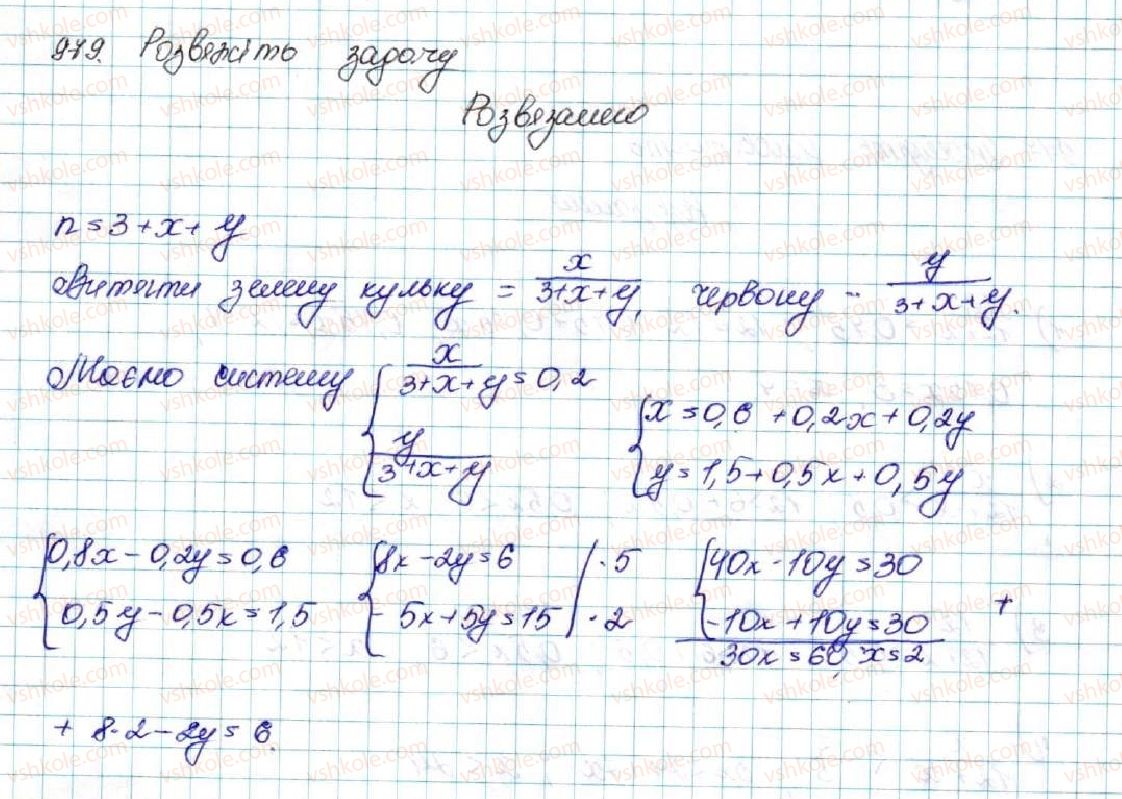 979. Розвяжіть задачу
Розвязанно
n = 3 + x + y
Витягти зелену кульку = x/(3+x+y), червону - y/(3+x+y).
Маємо систему { x/(3+x+y) = 0,2
y/(3+x+y)
{ x = 0,6 + 0,2x + 0,2y
y = 1,5 + 0,5x + 0,5y
{ 0,8x - 0,2y = 0,6
0,5y - 0,5x = 1,5
{ 8x - 2y = 6 | · 5
- 5x + 5y = 15 | · 2
{ 40x - 10y = 30
-10x + 10y = 30 +
30x = 60, x = 2
+ 8·2 - 2y = 6.
vshkole.com